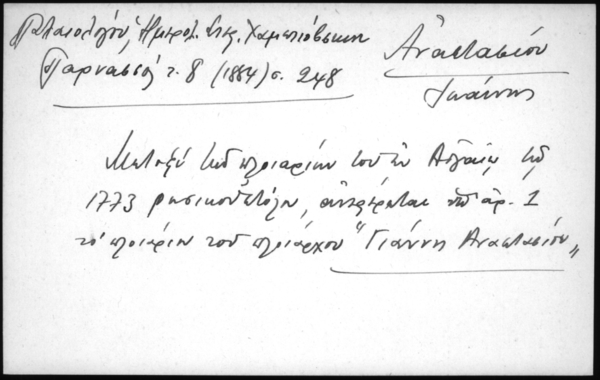 Παλαιολόγου, Ἡμερολ. ἐκ. Χαμετιόβσκη
Παρνασσός τ. 8 (1884) σ. 248
Ἀναστασίου
Ἰωάννης
Μεταξὺ τῶν πλοιαρίων τοῦ ἐν Αἰγαίῳ τῷ
1773 ρωσικοῦ στόλου, ἀναφέρεται ὑπ' ἀρ. 1
τὸ πλοιάριον τοῦ πλοιάρχου "Γιάννη Αναστασίου"